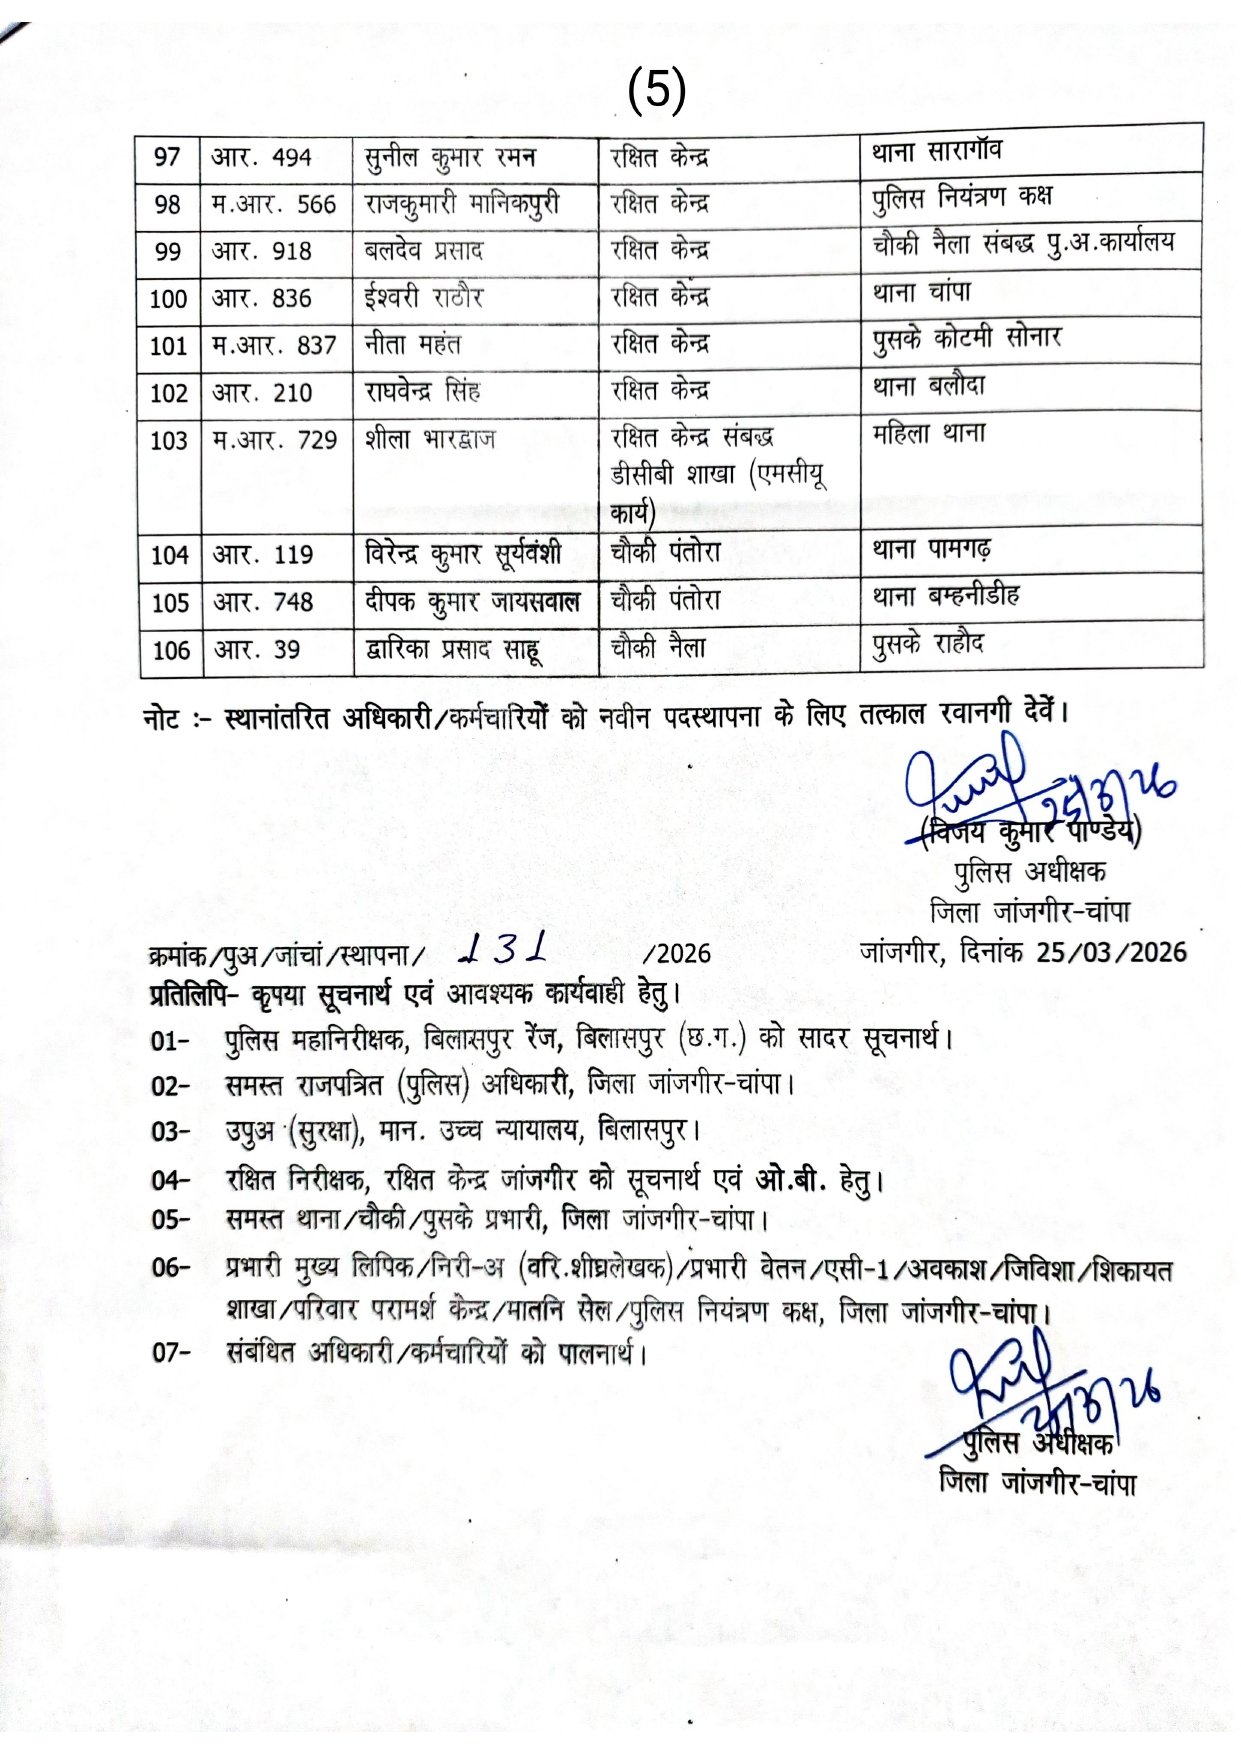 (5)
97 आर. 494 सुनील कुमार रमन रक्षित केन्द्र थाना सारागॉव
98 म.आर. 566 राजकुमारी मानिकपुरी रक्षित केन्द्र पुलिस नियंत्रण कक्ष
99 आर. 918 बलदेव प्रसाद रक्षित केन्द्र चौकी नैला संबद्ध पु.अ.कार्यालय
100 आर. 836 ईश्वरी राठौर रक्षित केन्द्र थाना चांपा
101 म.आर. 837 नीता महंत रक्षित केन्द्र पुसके कोटमी सोनार
102 आर. 210 राघवेन्द्र सिंह रक्षित केन्द्र थाना बलौदा
103 म.आर. 729 शीला भारद्वाज रक्षित केन्द्र संबद्ध महिला थाना
डीसीबी शाखा (एमसीयू
कार्य)
104 आर. 119 विरेन्द्र कुमार सूर्यवंशी चौकी पंतोरा थाना पामगढ़
105 आर. 748 दीपक कुमार जायसवाल चौकी पंतोरा थाना बम्हनीडीह
106 आर. 39 द्वारिका प्रसाद साहू चौकी नैला पुसके राहौद
नोट :- स्थानांतरित अधिकारी/कर्मचारियों को नवीन पदस्थापना के लिए तत्काल रवानगी देवें।
25/3/26
(विजय कुमार पाण्डेय)
पुलिस अधीक्षक
जिला जांजगीर-चांपा
क्रमांक/पुअ/जांचां/स्थापना/ 131 /2026 जांजगीर, दिनांक 25/03/2026
प्रतिलिपि- कृपया सूचनार्थ एवं आवश्यक कार्यवाही हेतु।
01- पुलिस महानिरीक्षक, बिलासपुर रेंज, बिलासपुर (छ.ग.) को सादर सूचनार्थ।
02- समस्त राजपत्रित (पुलिस) अधिकारी, जिला जांजगीर-चांपा।
03- उपुअ (सुरक्षा), मान. उच्च न्यायालय, बिलासपुर।
04- रक्षित निरीक्षक, रक्षित केन्द्र जांजगीर को सूचनार्थ एवं ओ.बी. हेतु।
05- समस्त थाना/चौकी/पुसके प्रभारी, जिला जांजगीर-चांपा।
06- प्रभारी मुख्य लिपिक/निरी-अ (वरि.शीघ्रलेखक)/प्रभारी वेतन/एसी-1/अवकाश/जिविशा/शिकायत
शाखा/परिवार परामर्श केन्द्र/मातनि सेल/पुलिस नियंत्रण कक्ष, जिला जांजगीर-चांपा।
07- संबंधित अधिकारी/कर्मचारियों को पालनार्थ।
पुलिस अधीक्षक
जिला जांजगीर-चांपा